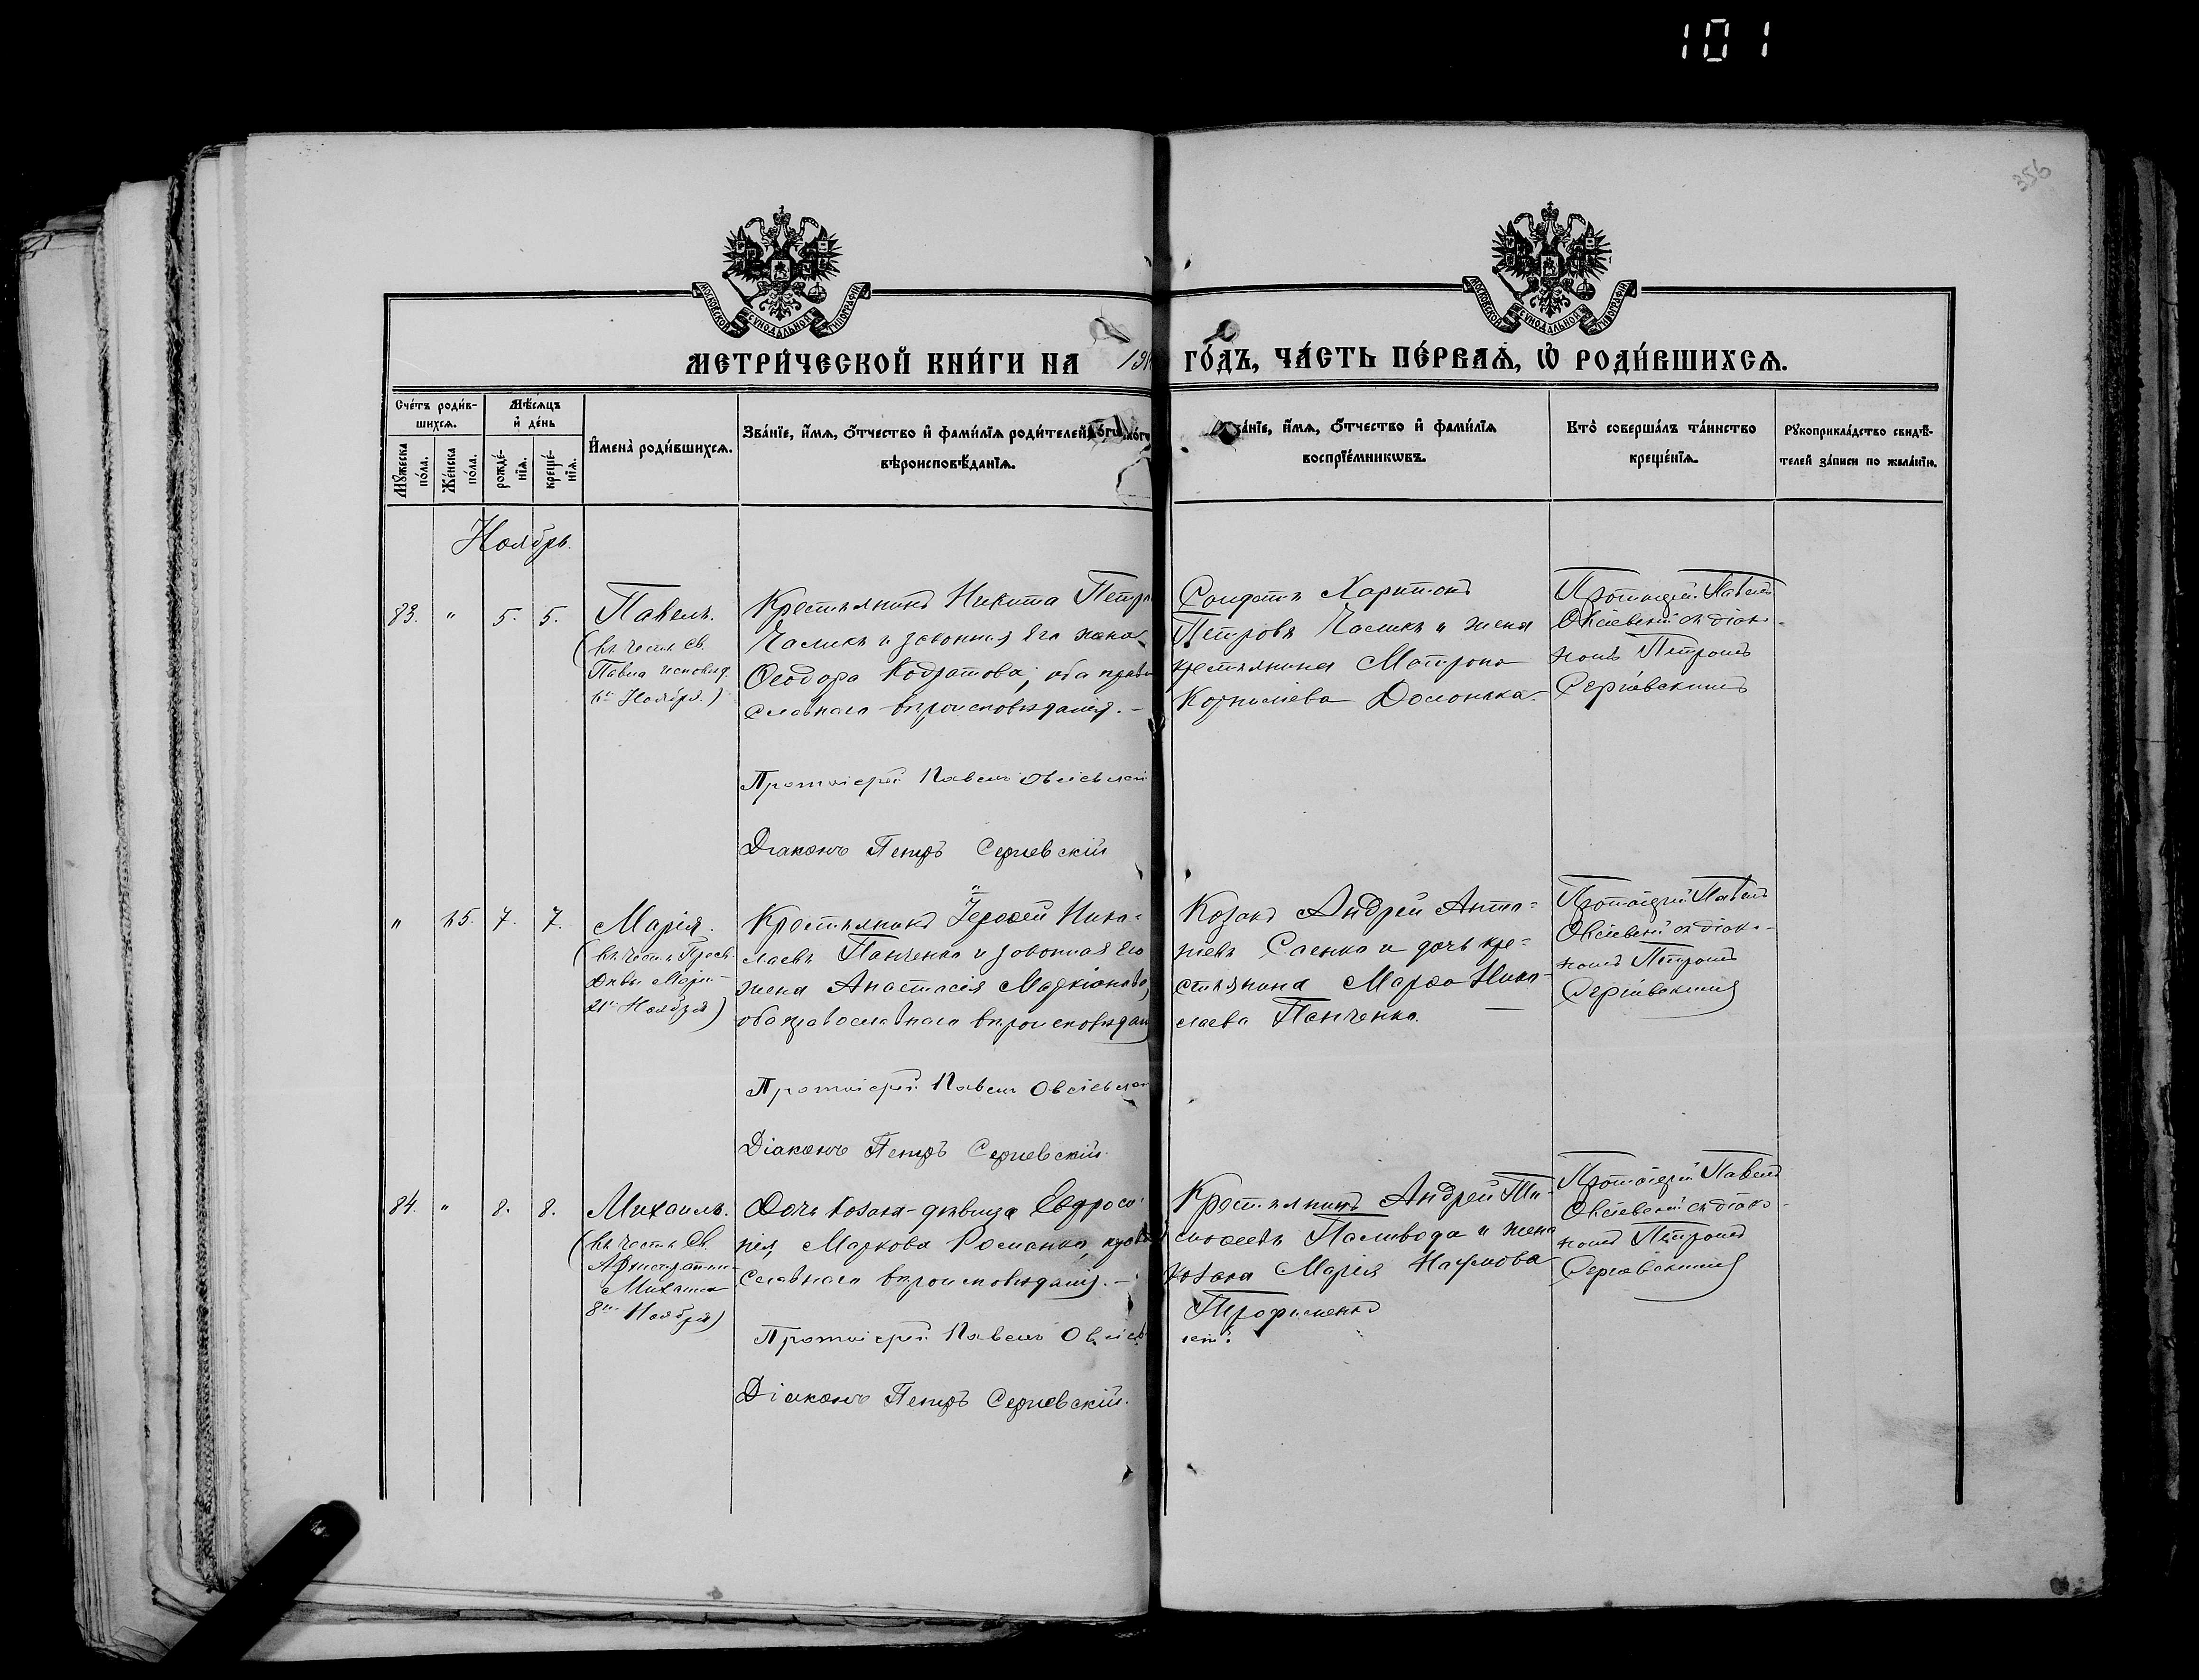 101
356
МОСКОВСКОЙ СѴНОДАЛЬНОЙ ТИПОГРАФІИ
МОСКОВСКОЙ СѴНОДАЛЬНОЙ ТИПОГРАФІИ
МЕТРИ́ЧЕСКОЙ КНИ́ГИ НА 19
ГО́ДЪ, ЧА́СТЬ ПЕ́РВАѦ, Ѡ҆ РОДИ́ВШИХСѦ.
Сче́тъ роди́в-
шихсѧ.
Мѣ́сѧцъ
и҆ де́нь
Мꙋ́жеска
по́ла.
Же́нска
по́ла.
рожде́-
нїѧ.
креще́-
нїѧ.
И҆мена̀ роди́вшихсѧ.
Зва́нїе, и҆́мѧ, ѻ҆́тчество и҆ фами́лїѧ роди́телей
вѣроисповѣ́данїѧ.
и҆́мѧ, ѻ҆́тчество и҆ фами́лїѧ
воспрїе́мникѡвъ.
Кто̀ соверша́лъ та́инство
креще́нїѧ.
Рꙋкоприкла́дство свидѣ́-
телей за́писи по жела́нїю.
Ноябрь.
83. " 5. 5. Павелъ.
(въ честь Св.
Павла исповѣд.
6го Ноября.)
Крестьянинъ Никита Петр
Часникъ и законная его жена
Ѳеодора Кодратова, оба право
славнаго вѣроисповѣданія. –
Протоіерей Павелъ Овсіевскій
Діаконъ Петръ Сергіевскій
Солдатъ Харитонъ
Петровъ Часникъ и жена
крестьянина Матрона
Корнилиева
Протоіерей Павелъ
Овсіевскій съ діако-
номъ Петромъ
Сергіевскимъ
" 65. 7. 7. Марія.
(въ честь Пресв.
Дѣвы Маріи
21го Ноября)
Крестьянинъ Іероѳей Нико-
лаевъ Панченко и законная его
жена Анастасія Маркіонова,
оба православнаго вѣроисповѣдан
Протоіерей Павелъ Овсіевскій
Діаконъ Петръ Сергіевскій.
Козакъ Андрей Анто-
ніевъ Саенко и дочь кре-
стьянина Марѳа Нико-
лаева Панченко.
Протоіерей Павелъ
Овсіевскій съ діако-
номъ Петромъ
Сергіевскимъ
84. " 8. 8. Михаилъ.
(въ честь Св.
Архистратига
Михаила
8го Ноября)
Дочь козака-дѣвица Евфроси-
нія Маркова Романко, право
славнаго вѣроисповѣданія. –
Протоіерей Павелъ Овсіев
скій.
Діаконъ Петръ Сергіевскій.
Крестьянинъ Андрей Ти-
моѳеевъ Паливода и жена
козака Марія Наумова
Трофименко
Протоіерей Павелъ
Овсіевскій съ діако-
номъ Петромъ
Сергіевскимъ